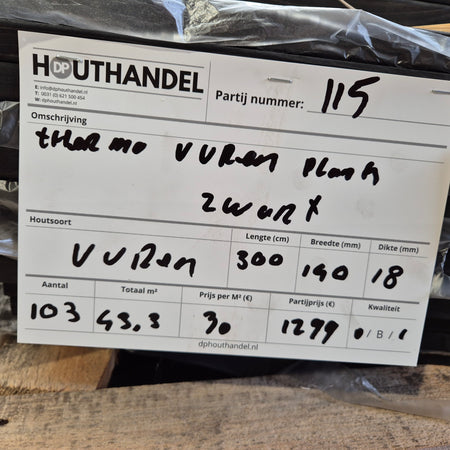 HOUTHANDEL
DP
E: info@dphouthandel.nl
T: 0031 (0) 621 500 454
W: dphouthandel.nl
Partij nummer: 115
Omschrijving
thermo vuren plank
zwart
Houtsoort Lengte (cm) Breedte (mm) Dikte (mm)
vuren 300 140 18
Aantal Totaal m² Prijs per M² (€) Partijprijs (€) Kwaliteit
103 43,3 30 1299 / B /
dphouthandel.nl